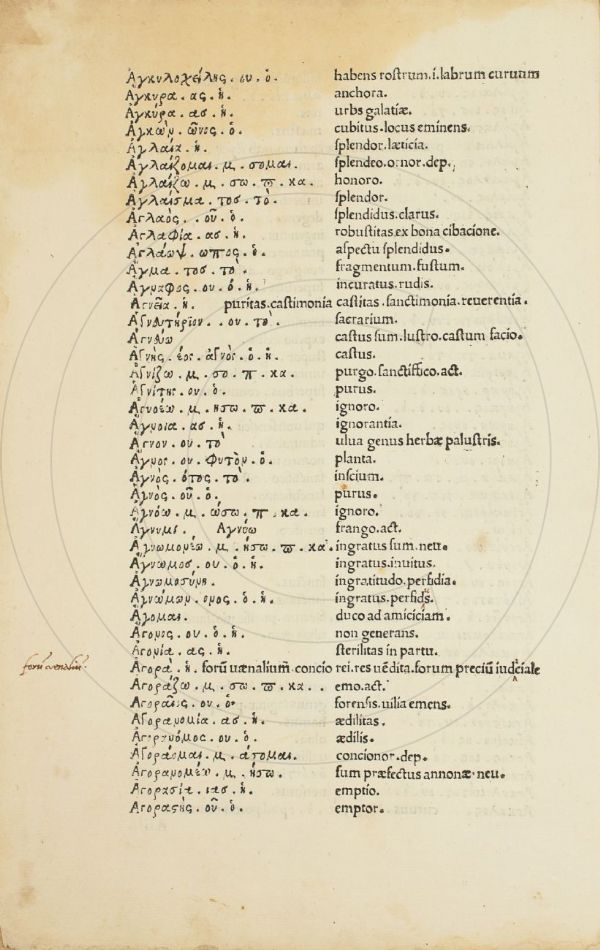 Ἀγκυλοχείλης . ου . ὁ. habens rostrum.i.labrum curuum
Ἄγκυρα . ας . ἡ. anchora.
Ἀγκύρα . ασ . ἡ. urbs galatiæ.
Ἀγκὼμ . ῶνος . ὁ. cubitus.locus eminens.
Ἀγλαΐα . ἡ. splendor.læticia.
Ἀγλαΐζομαι . μ . σομαι. splendeo.ornor.dep.
Ἀγλαΐζω . μ . σω . π . κα . honoro.
Ἀγλάϊσμα . τοσ . τὸ. splendor.
Ἀγλαὸς . οῦ . ὁ. splendidus.clarus.
Ἀγλαφία . ασ . ἡ. robustitas.ex bona cibacione.
Ἀγλάωψ . ωπος . ὁ. aspectu splendidus.
Ἄγμα . τοσ . τὸ . fragmentum.fustum.
Ἄγναφος . ου . ὁ . ἡ . incuratus.rudis.
Ἁγνεία . ἡ . puritas.castimonia castitas.sanctimonia.reuerentia.
Ἁγνευτήριον . . ου . τὸ . sacrarium.
Ἁγνεύω castus sum.lustro.castum facio.
Ἁγνὴς . έος . ἁγνὸς . ὁ . ἡ . castus.
Ἁγνίζω . μ . σο . π . κα . purgo.sanctiffico.act.
Ἁγνίτης . ου . ὁ . purus.
Ἀγνοέω . μ . ήσω . π . κα . ignoro.
Ἄγνοια . ασ . ἡ . ignorantia.
Ἄγνον . ου . τὸ ulua genus herbæ palustris.
Ἄγνος . ου . φυτὸν . ὁ . planta.
Ἀγνὸς . ότος . τὸ . inscium.
Ἁγνὸς . οῦ . ὁ . purus.
Ἀγνόω . μ . ώσω . π . κα . ignoro.
Ἄγνυμι . Ἀγνύω frango.act.
Ἀγνωμονέω . μ . ήσω . π . κα . ingratus sum.neu.
Ἄγνωμοσ . ου . ὁ . ἡ . ingratus.inuitus.
Ἀγνωμοσύνη . ingratitudo.perfidia.
Ἀγνώμωμ . ομος . ὁ . ἡ . ingratus.perfidꝰ.
Ἄγομαι . duco ad amiciciam.
Ἄγονος . ου . ὁ . ἡ . non generans.
Ἀγονία . ας . ἡ . sterilitas in partu.
forū uenaliū.
Ἀγορὰ . ἡ . forū uænalium.concio rei.res uēdita.forum preciū iudciale
Ἀγοράζω . μ . σω . π . κα . . emo.act.
Ἀγοραῖος . ου . ὁ . forensis.uilia emens.
Ἀγορανομία . ασ . ἡ . ædilitas.
Ἀγορανόμος . ου . ὁ . ædilis.
Ἀγοράομαι . μ . άσομαι . concionor.dep.
Ἀγορανομέω . μ . ήσω . sum præfectus annonæ.neu.
Ἀγορασία . ιασ . ἡ . emptio.
Ἀγοραστὴς . οῦ . ὁ . emptor.